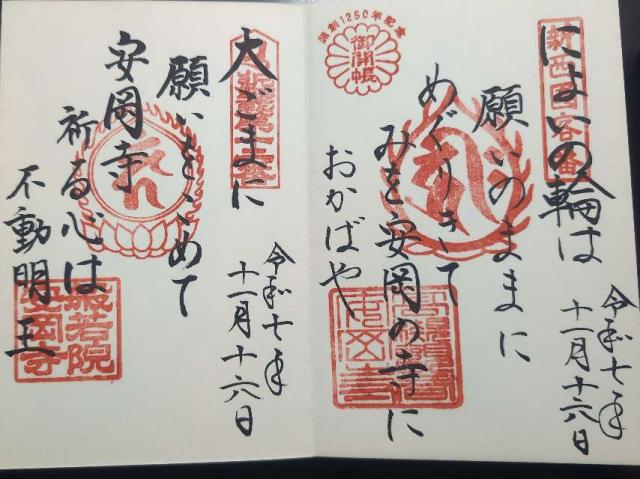 新西国客番
開創1250年記念
御開帳
によいの輪は
願いのままに
めぐりきて
みを安岡の寺に
おかばや
令和七年
十一月十六日
大ごまに
願いをこめて
安岡寺
祈る心は
不動明王
般若院
安岡寺
令和七年
十一月十六日